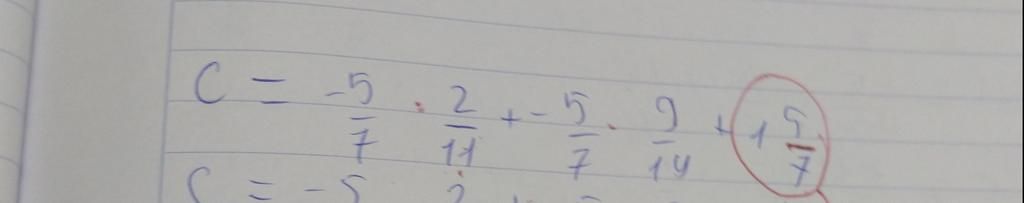 C = -5/7 · 2/11 + -5/7 · 9/14 + 1 5/7
C = -5 2